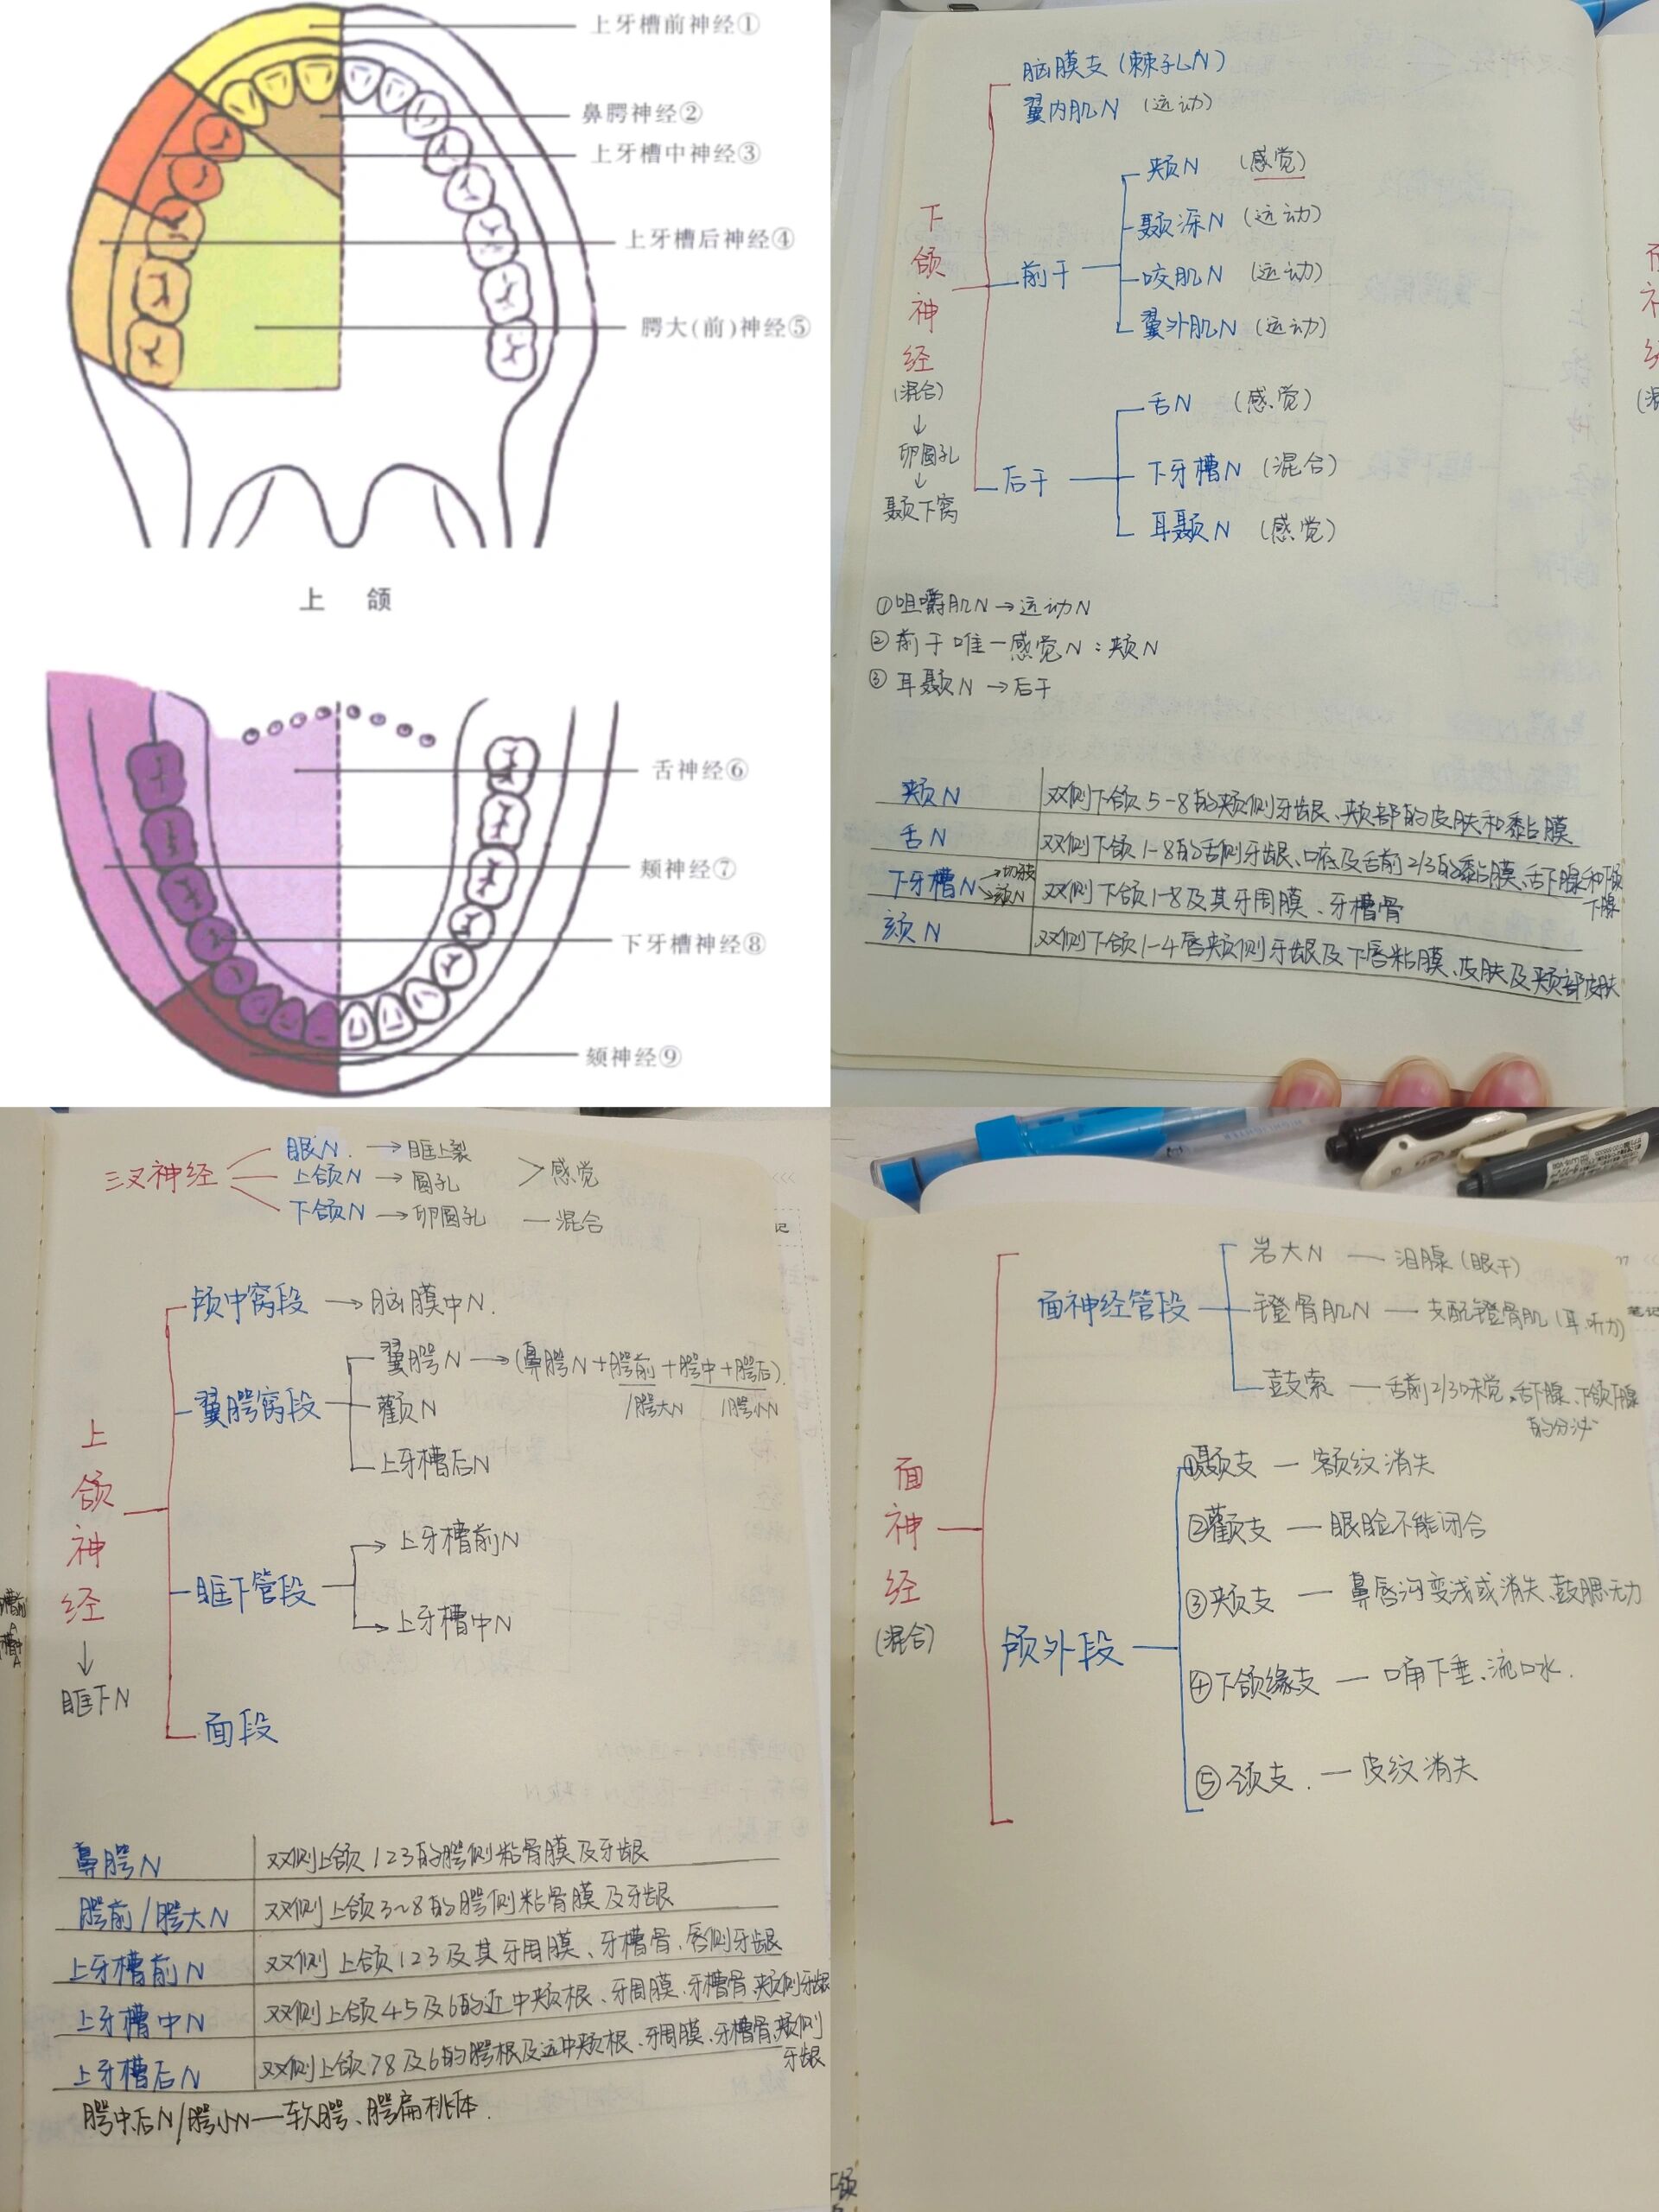 上牙槽前神经①
鼻腭神经②
上牙槽中神经③
上牙槽后神经④
腭大(前)神经⑤
上 颌
舌神经⑥
颊神经⑦
下牙槽神经⑧
颏神经⑨
下颌神经
(混合)
↓
卵圆孔
↓
颞下窝
脑膜支(棘孔N)
翼内肌N (运动)
前干
颊N (感觉)
颞深N (运动)
咬肌N (运动)
翼外肌N (运动)
后干
舌N (感觉)
下牙槽N (混合)
耳颞N (感觉)
①咀嚼肌N→运动N
②前干唯一感觉N:颊N
③耳颞N→后干
颊N 双侧下颌5-8的颊侧牙龈、颊部的皮肤和黏膜
舌N 双侧下颌1-8的舌侧牙龈、口底及舌前2/3的黏膜、舌下腺和下颌
下腺
下牙槽N →切牙支 →颏N 双侧下颌1-8及其牙周膜、牙槽骨
颏N 双侧下颌1-4唇颊侧牙龈及下唇粘膜、皮肤及颊部皮肤
三叉神经
眼N. →眶上裂
上颌N →圆孔 >感觉
下颌N →卵圆孔 —混合
上颌神经
↓
眶下N
颅中窝段 →脑膜中N.
翼腭窝段
翼腭N →(鼻腭N+腭前+腭中+腭后).
/腭大N /腭小N
颧N
上牙槽后N
眶下管段
→上牙槽前N
→上牙槽中N
面段
鼻腭N 双侧上颌123的腭侧粘骨膜及牙龈
腭前/腭大N 双侧上颌3~8的腭侧粘骨膜及牙龈
上牙槽前N 双侧上颌123及其牙周膜、牙槽骨、唇侧牙龈
上牙槽中N 双侧上颌45及6的近中颊根、牙周膜、牙槽骨、颊侧牙龈
上牙槽后N 双侧上颌78及6的腭根及远中颊根、牙周膜、牙槽骨、颊侧
牙龈
腭中.后N/腭小N—软腭、腭扁桃体.
面神经
(混合)
面神经管段
岩大N — 泪腺(眼干)
镫骨肌N — 支配镫骨肌(耳.听力)
笔记
鼓索 — 舌前2/3味觉、舌下腺、下颌下腺
的分泌
颅外段
①颞支 — 额纹消失
②颧支 — 眼睑不能闭合
③颊支 — 鼻唇沟变浅或消失、鼓腮无力
④下颌缘支 — 口角下垂、流口水.
⑤颈支. — 皮纹消失